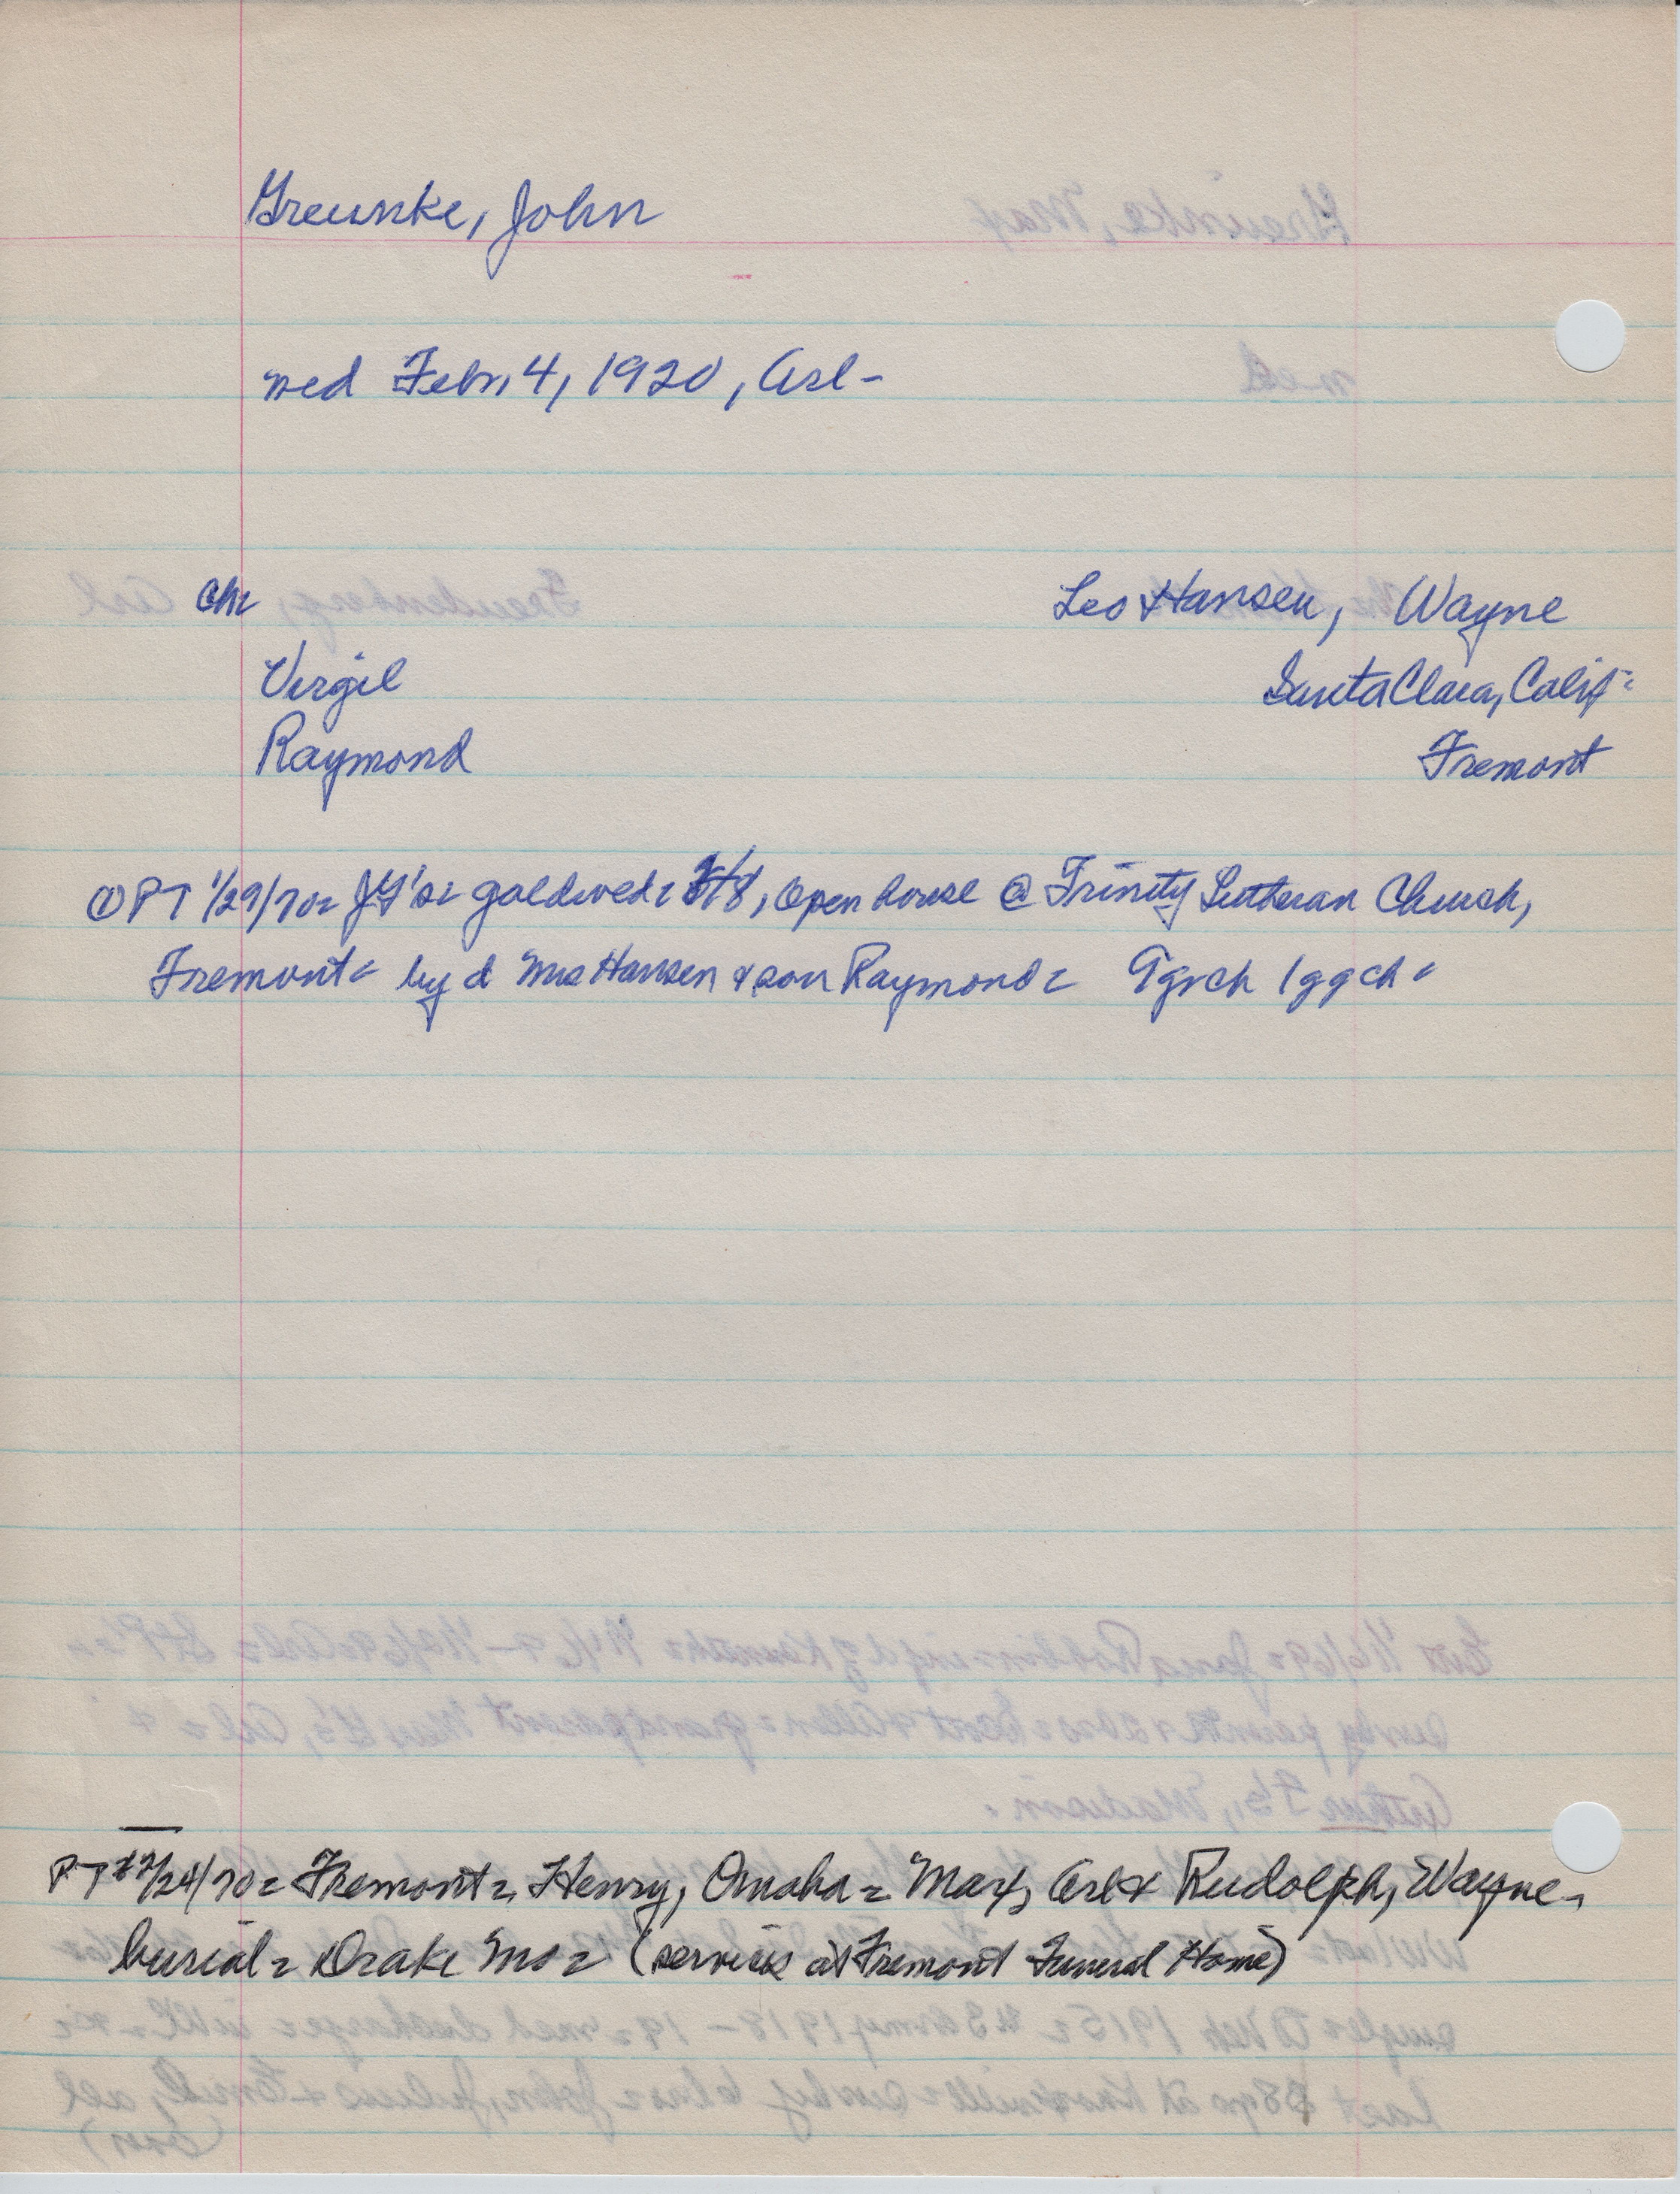 Greunke, John
wed Febr, 4, 1920, Arl-
Chr Leo Hansen, Wayne
Virgil Santa Clara, Calif-
Raymond Fremont
① PT 1/29/70= JG's= goldwed= /8, open house @ Trinity Lutheran Church,
Fremont= by d Mrs Hansen & son Raymond= 9grch 1ggch=
PT /24/70= Fremont=, Henry, Omaha= Max, Arl & Rudolph, Wayne-
burial= Drake Mo= (services at Fremont Funeral Home)